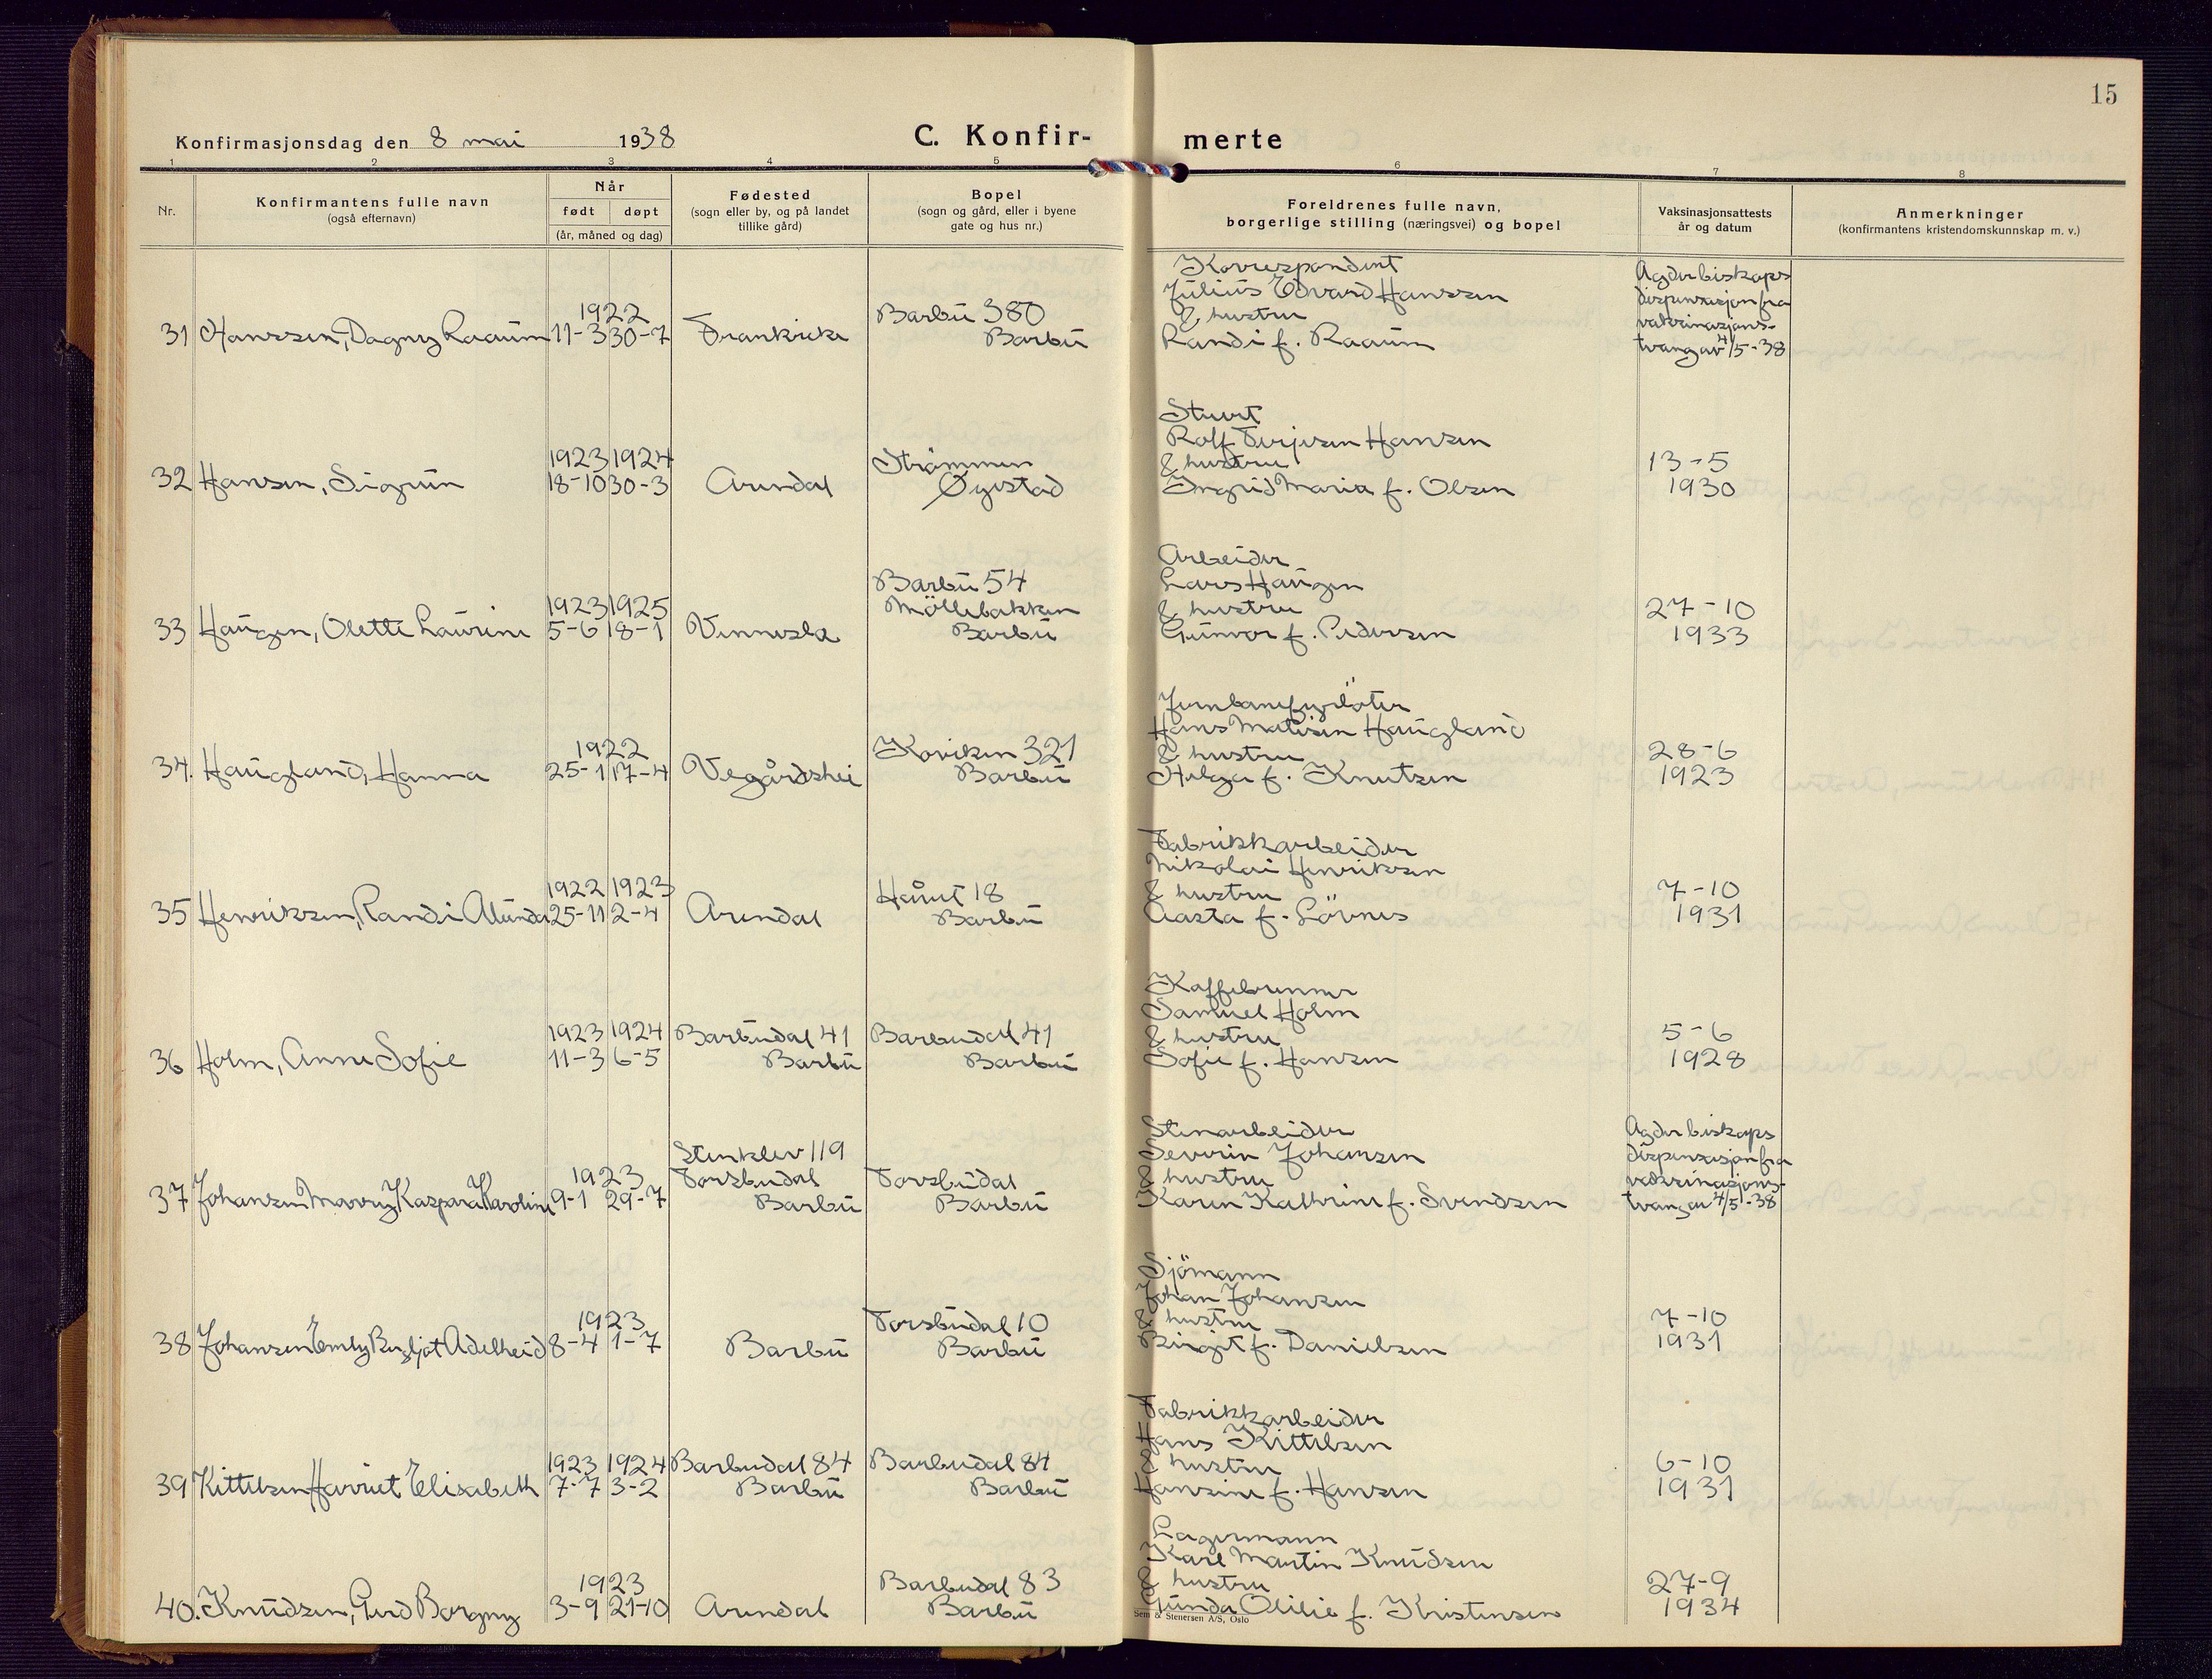 15
Konfirmasjonsdag den 8 mai 1938
C. Konfir- merte
1 2 3 4 5 6 7 8
Nr.
Konfirmantens fulle navn
(også efternavn)
Når
født døpt
(år, måned og dag)
Fødested
(sogn eller by, og på landet
tillike gård)
Bopel
(sogn og gård, eller i byene
gate og hus nr.)
Foreldrenes fulle navn,
borgerlige stilling (næringsvei) og bopel
Vaksinasjonsattests
år og datum
Anmerkninger
(konfirmantens kristendomskunnskap m. v.)
Korrespondent
Julius Edvard Hanssen
1922 Barbu 380 & hustru
31 Hanssen, Dagny Raaum 11-3 30-7 Frankrike Barbu Randi f. Raaum
Agder biskops
dispensasjon fra
vaksinasjons-
tvang av 4/5-38
Stuert
Rolf Terjesen Hansen
1923 1924 Strømmen & hustru 13-5
32 Hansen, Sigrun 18-10 30-3 Arendal Øyestad Ingrid Marie f. Olsen 1930
Arbeider
Barbu 54 Lars Haugen
1923 1925 Möllebakken & hustru 27-10
33 Haugen, Olette Laurine 5-6 18-1 Vennesla Barbu Gunvor f. Pedersen 1933
Jernbanefyrböter
Hans Matisen Haugland
1922 Koviken 321 & hustru 28-6
34. Haugland, Hanna 25-1 17-4 Vegårdshei Barbu Helga f. Knutsen 1923
Fabrikkarbeider
Nikolai Henriksen
1922 1923 Håvet 18 & hustru 7-10
35 Henriksen, Randi Alunda 25-11 2-4 Arendal Barbu Aasta f. Lövnes 1931
Kaffebrenner
Samuel Holm
1923 1924 Barbudal 41 Barbudal 41 & hustru 5-6
36 Holm, Anne Sofie 11-3 6-5 Barbu Barbu Sofie f. Hansen 1928
Stenarbeider
Stenklev 119 Severin Johansen
1923 Torsbudal Torsbudal & hustru
37 Johansen Marry Kaspara Karoline 9-1 29-7 Barbu Barbu Karen Kathrine f. Svendsen
Agder biskops
dispensasjon fra
vaksinasjons-
tvang av 4/5-38
Sjömann
Johan Johansen
1923 Torsbudal 10 & hustru 7-10
38 Johansen Emly Bergljot Adelheid 8-4 1-7 Barbu Barbu Birgit f. Danielsen 1931
Fabrikkarbeider
Hans Kittelsen
1923 1924 Barbudal 84 Barbudal 84 & hustru 6-10
39 Kittelsen Harriet Elisabeth 7-7 3-2 Barbu Barbu Hansine f. Hansen 1931
Lagermann
Karl Martin Knudsen
1923 Barbudal 83 & hustru 27-9
40. Knudsen, Gerd Borgny 3-9 21-10 Arendal Barbu Gunda Otilie f. Kristensen 1934
Sem & Stenersen A/S, Oslo